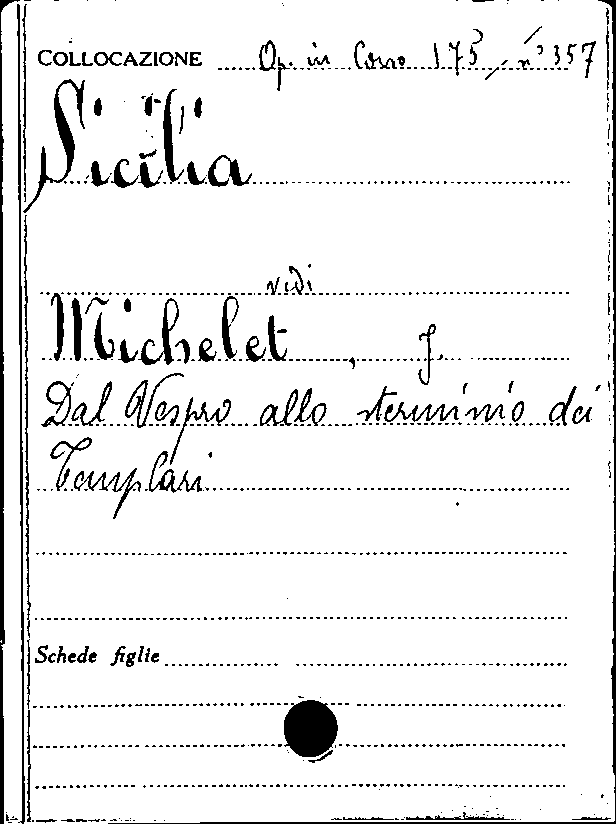 COLLOCAZIONE Op. in Corso 175, n° 357
Sicilia
vedi
Michelet, J.
Dal Vespro allo sterminio dei
Templari
Schede figlie